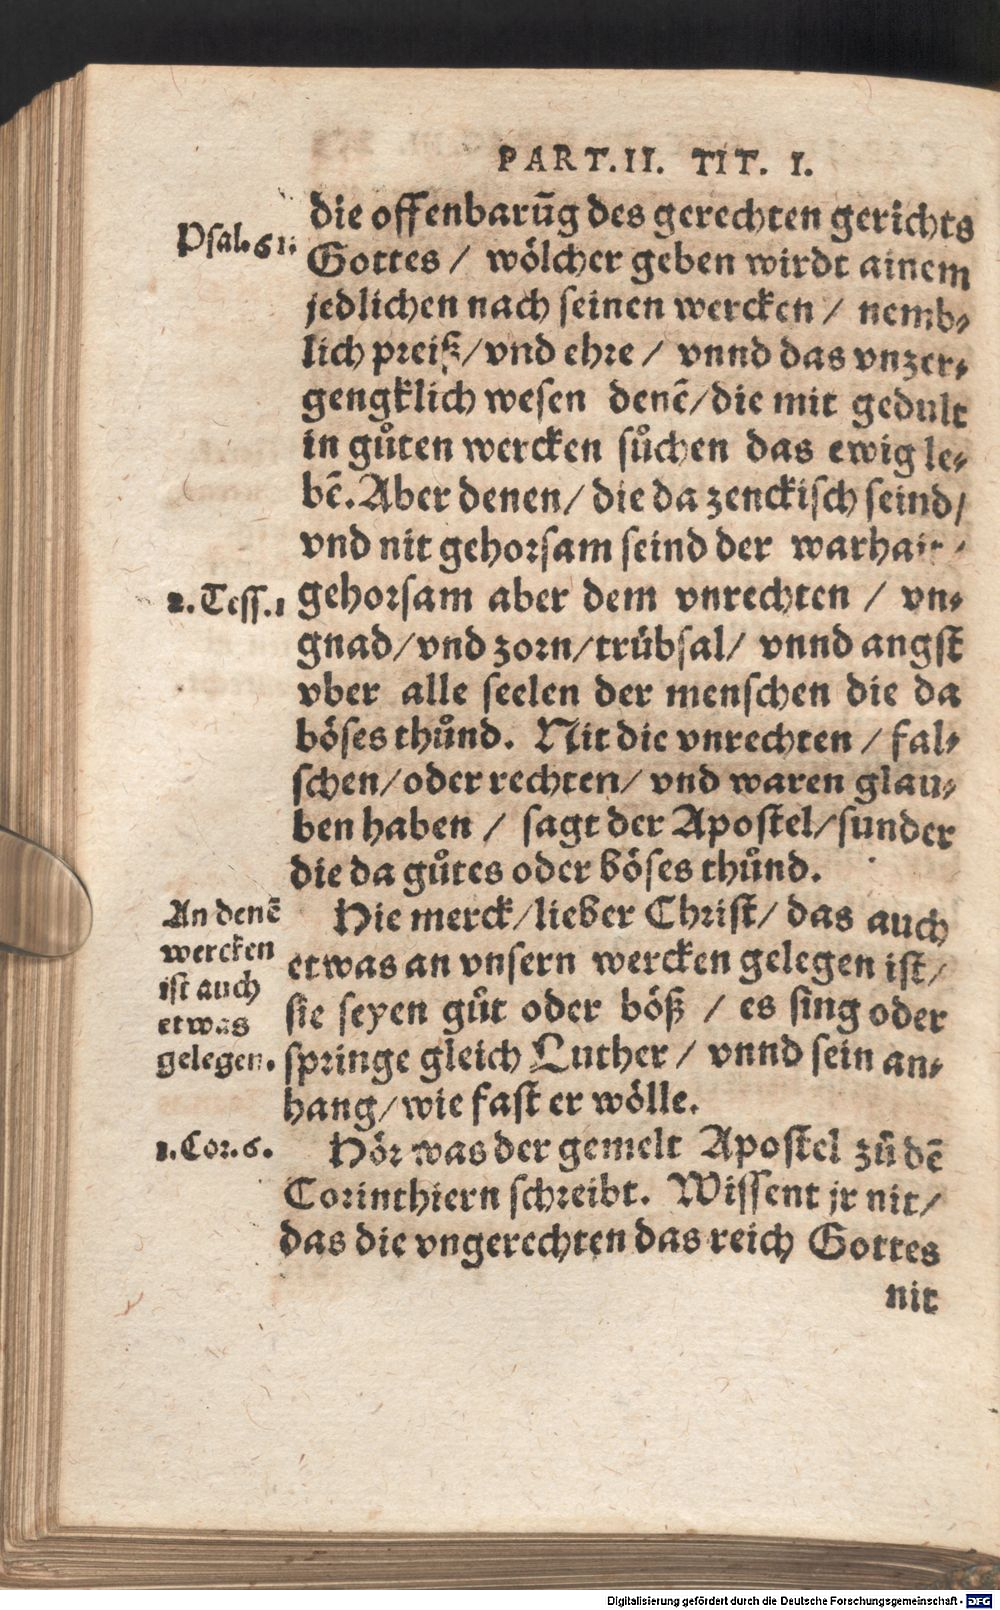 PART. II. TIT. I.
Psal. 61.
die offenbarūg des gerechten gerichts
Gottes / wölcher geben wirdt ainem
jedlichen nach seinen wercken / nemb⸗
lich preiß / vnd ehre / vnnd das vnzer⸗
gengklich wesen denē / die mit gedult
in gůten wercken sůchen das ewig le⸗
bē. Aber denen / die da zenckisch seind /
vnd nit gehorsam seind der warhait /
2. Tess. 1
gehorsam aber dem vnrechten / vn⸗
gnad / vnd zorn / trübsal / vnnd angst
vber alle seelen der menschen die da
böses thůnd. Nit die vnrechten / fal⸗
schen / oder rechten / vnd waren glau⸗
ben haben / sagt der Apostel / sunder
die da gůtes oder böses thůnd.
An denē
wercken
ist auch
etwas
gelegen.
Hie merck / lieber Christ / das auch
etwas an vnsern wercken gelegen ist /
sie seyen gůt oder böß / es sing oder
springe gleich Luther / vnnd sein an⸗
hang / wie fast er wölle.
1. Cor. 6.
Hör was der gemelt Apostel zů dē
Corinthiern schreibt. Wissent jr nit /
das die vngerechten das reich Gottes
nit
Digitalisierung gefördert durch die Deutsche Forschungsgemeinschaft - DFG